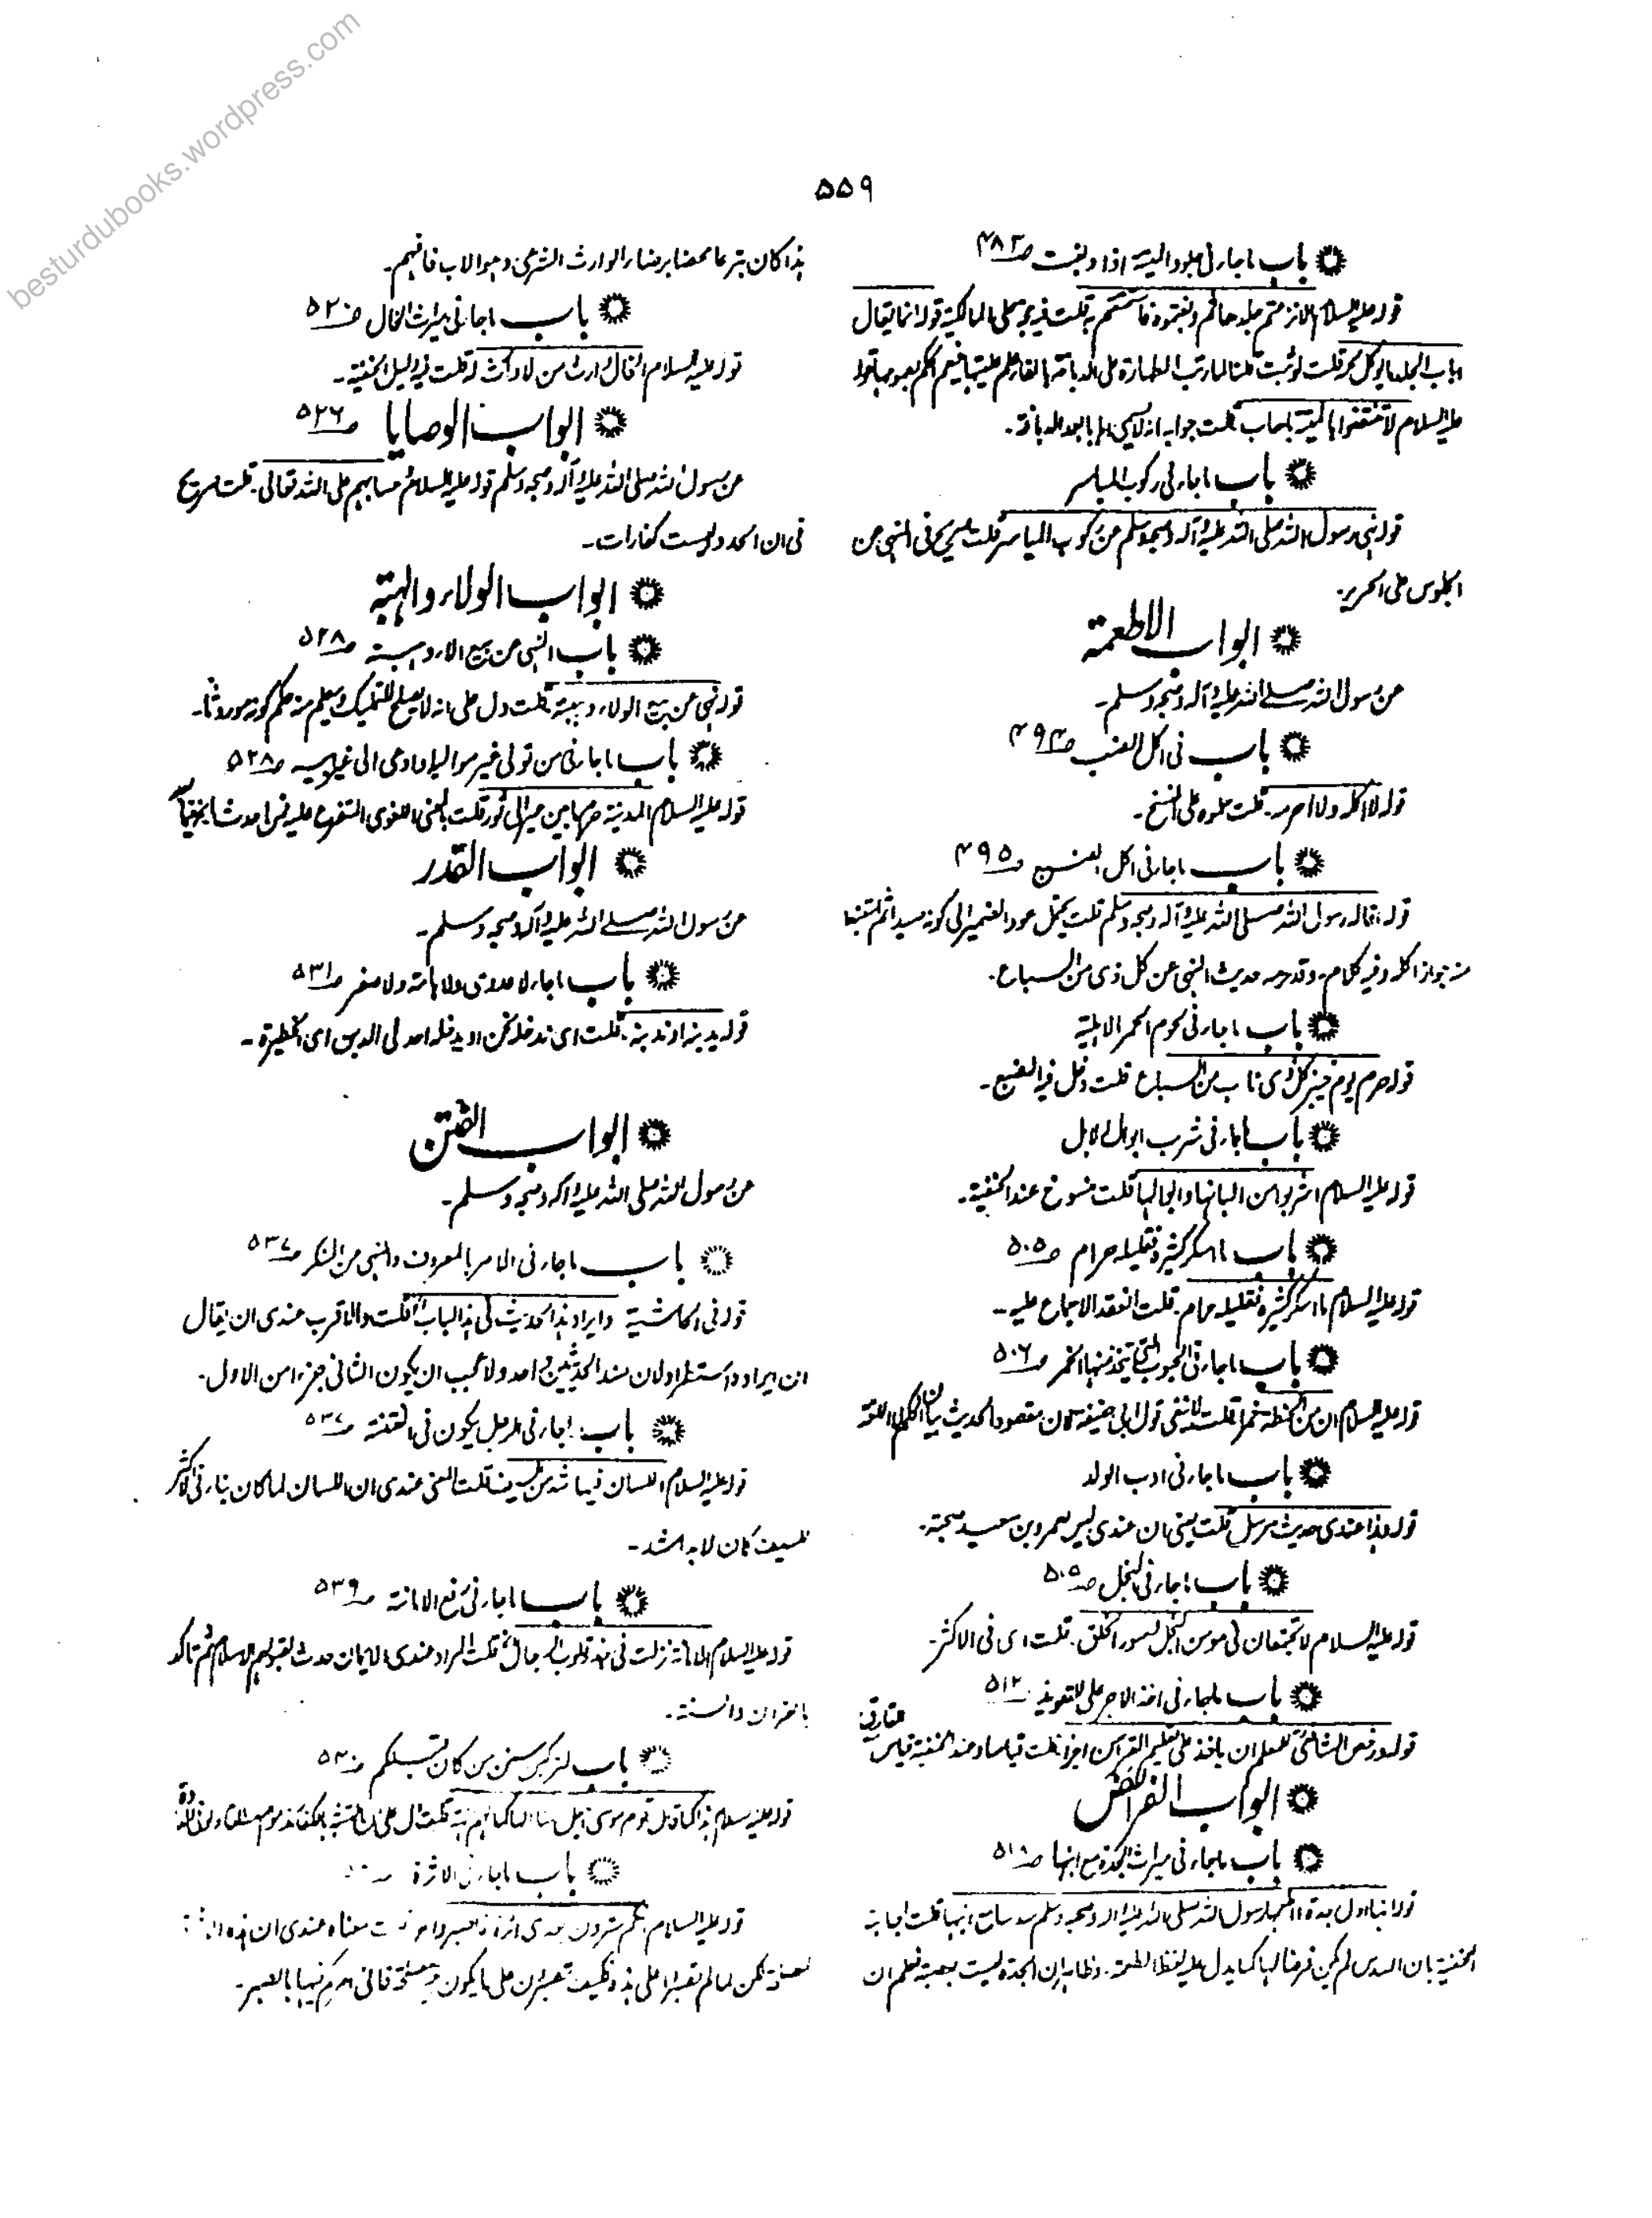 besturdubooks.wordpress.com
۵۵۹
باب ما جاء فی جلود المیتۃ اذا دبغت ص۴۸۳
قولہ علیہ السلام الا نزعتم جلدہا ثم دبغتموہ فاستمتعتم بہ قلت فیہ حجۃ علی المالکیۃ قولہ انما یقال
علیہ السلام لا تنتفعوا من المیتۃ باہاب قلت جوابہ انہ لا یسمی اہابا بعد الدباغۃ۔
باب ما جاء فی رکوب المیاثر
قولہ نہی رسول اللہ صلی اللہ علیہ وآلہ وصحبہ وسلم عن رکوب المیاثر قلت صریح فی النہی عن
الجلوس علی الحریر۔
ابواب الاطعمۃ
عن رسول اللہ صلے اللہ علیہ وآلہ وصحبہ وسلم۔
باب فی اکل الضب ص۴۹۴
قولہ لا آکلہ ولا احرمہ۔ قلت حملوہ علی النسخ۔
باب ما جاء فی اکل الضبع ص۴۹۵
قولہ اقالہ رسول اللہ صلی اللہ علیہ وآلہ وصحبہ وسلم قلت یحتمل عود الضمیر الی کونہ صیدا ثم استنبط
منہ جواز اکلہ وفیہ کلام۔ وقد حرمہ حدیث النہی عن کل ذی من السباع۔
باب ما جاء فی لحوم الحمر الاہلیۃ
قولہ حرم یوم خیبر کل ذی ناب من السباع قلت دخل فیہ الضبع۔
باب ما جاء فی شرب ابوال الابل
قولہ علیہ السلام اشربوا من البانہا وابوالہا قلت منسوخ عند الحنفیۃ۔
باب ما اسکر کثیرہ فقلیلہ حرام ص۵۰۵
قولہ علیہ السلام ما اسکر کثیرہ فقلیلہ حرام۔ قلت انعقد الاجماع علیہ۔
باب ما جاء فی الحبوب التی یتخذ منہا الخمر ص۵۰۶
قولہ علیہ السلام ان من الحنطۃ خمرا قلت لا ینفی قول ابی حنیفۃ لان مقصود الحدیث بیان الحکم لا اللغۃ
باب ما جاء فی ادب الولد
قولہ ہذا عندی حدیث مرسل قلت یعنی ان عندی لیس لعمرو بن سعید صحبۃ۔
باب ما جاء فی البخل ص۵۰۹
قولہ علیہ السلام لا تجتمعان فی مومن البخل وسوء الخلق۔ قلت ای فی الاکثر۔
باب ما جاء فی اخذ الاجر علی التعویذ ص۵۱۲
قولہ ورخص الشافعی للمعلم ان یاخذ علی تعلیم القرآن اجرا قلت قیاسا وعند الحنفیۃ قیاس
ابواب الفرائض
باب ما جاء فی میراث الجدۃ مع ابنہا ص۵۱۸
قولہ انہا اول جدۃ اطعمہا رسول اللہ صلی اللہ علیہ وآلہ وصحبہ وسلم سدسا مع ابنہا قلت اجابۃ
الحنفیۃ بان السدس لم یکن فرضا لہا کما یدل علیہ لفظ الطعمۃ۔ وظاہر ان الجدۃ لیست بعصبۃ فعلم ان
ہذا کان تبرعا محضا برضاء الوارث الشرعی وہو الاب فافہم۔
باب ما جاء فی میراث الخال ص۵۲۰
قولہ علیہ السلام الخال وارث من لا وارث لہ قلت فیہ دلیل الحنفیۃ۔
ابواب الوصایا ص۵۲۶
عن رسول اللہ صلی اللہ علیہ وآلہ وصحبہ وسلم قولہ علیہ السلام حسابہم علی اللہ تعالی۔ قلت صریح
فی ان الحدود لیست کفارات۔
ابواب الولاء والہبۃ
باب النہی عن بیع الولاء وہبتہ ص۵۲۸
قولہ نہی عن بیع الولاء وہبتہ قلت دل علی انہ لا یصلح للتملیک ویعلم منہ حکم کونہ موروثا۔
باب ما جاء فی من تولی غیر موالیہ او ادعی الی غیر ابیہ ص۵۲۸
قولہ علیہ السلام المدینۃ حرم ما بین عیر الی ثور قلت بالمعنی اللغوی
ابواب القدر
عن رسول اللہ صلے اللہ علیہ وآلہ وصحبہ وسلم۔
باب ما جاء لا عدوی ولا ہامۃ ولا صفر ص۵۳۱
قولہ یدبنہ او ندبنہ۔ قلت ای ندخلہ نحن او یدخلہ احد فی الدبن ای الحظیرۃ۔
ابواب الفتن
عن رسول اللہ صلی اللہ علیہ وآلہ وصحبہ وسلم۔
باب ما جاء فی الامر بالمعروف والنہی عن المنکر ص۵۳۷
قولہ فی الحاشیۃ وایراد ہذا الحدیث فی ہذا الباب الخ قلت والاقرب عندی ان یقال
ان ایرادہ استطراد لان سند الحدیثین واحد ولا یجب ان یکون الثانی جزء من الاول۔
باب ما جاء فی الرجل یکون فی الفتنۃ ص۵۳۷
قولہ علیہ السلام اللسان فیہا اشد من السیف قلت المعنی عندی ان اللسان لما کان
للسیف کان لا بد اشد۔
باب ما جاء فی رفع الامانۃ ص۵۳۹
قولہ علیہ السلام الامانۃ نزلت فی جذر قلوب الرجال الخ قلت المراد عندی الایمان حدث
بالقرآن والسنۃ۔
باب لترکبن سنن من کان قبلکم ص۵۴۰
قولہ علیہ السلام ہذا کما قال قوم موسی اجعل لنا الہا کما لہم آلہۃ قلت دال علی ان التشبہ بالکفار مذموم
باب ما جاء فی الاثرۃ
قولہ علیہ السلام انکم سترون بعدی اثرۃ فاصبروا معناہ عندی ان ہذہ